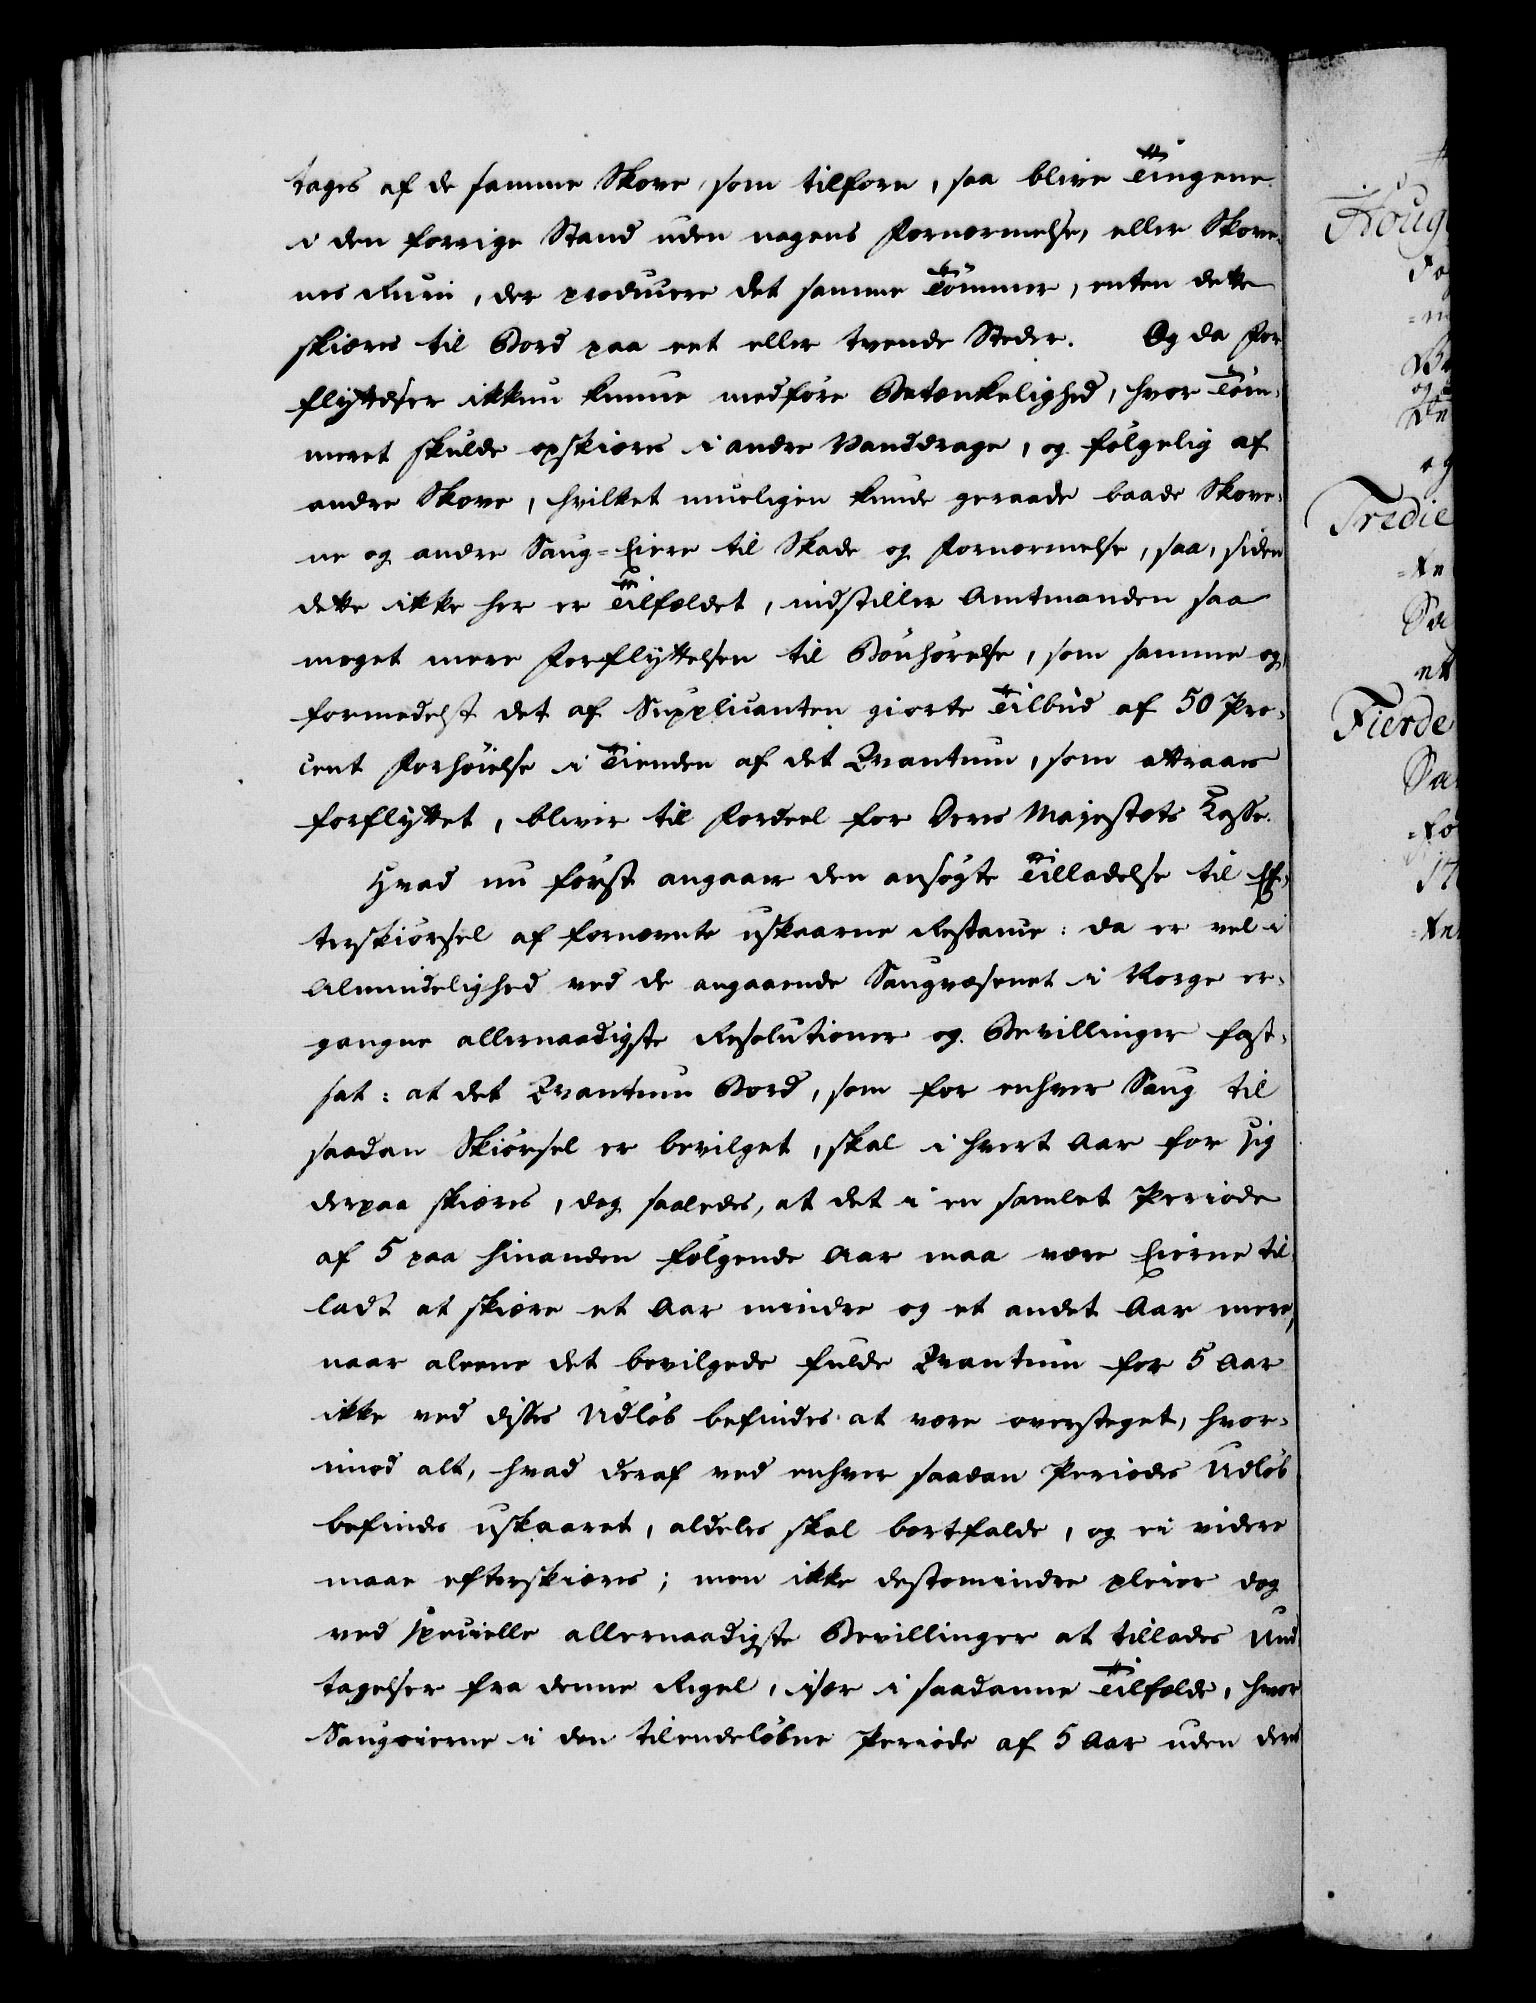 tages af de samme Skove, som tilforn, saa blive Tingene
i den forrige Stand uden nogens Fornærmelse, eller Skove-
nes Ruin, der producere det samme Tømmer, enten dette
skiæres til Bord paa eet eller tvende Steder. Og da For-
flyttelser ikkun kunne medføre Betænkelighed, hvor Tøm-
meret skulde opskiæres i andre Vanddrage, og følgelig af
andre Skove, hvilket mueligen kunde geraade baade Skove-
ne og andre Saug-Eiere til Skade og Fornærmelse, saa, siden
dette ikke her er Tilfældet, indstiller Amtmanden saa
meget mere Forflyttelsen til Bønhørelse, som samme og,
formedelst det af Supplicanten giorte Tilbud af 50 Pro-
cent Forhøielse i Tienden af det Qvantum, som attraaes
forflyttet, bliver til Fordeel for Deres Majestæts Kasse.
Hvad nu først angaaer den ansøgte Tilladelse til Ef-
terskiørsel af fornævnte uskaarne Restance: da er vel i
Almindelighed ved de angaaende Saugvæsenet i Norge er-
gangne allernaadigste Resolutioner og Bevillinger fast-
sat: at det Qvantum Bord, som for enhver Saug til
saadan Skiørsel er bevilget, skal i hvert Aar for sig
derpaa skiæres, dog saaledes, at det i en samlet Periode
af 5 paa hinanden følgende Aar maa være Eierne til-
ladt at skiære et Aar mindre og et andet Aar mere,
naar alene det bevilgede fulde Qvantum for 5 Aar
ikke ved disses Udløb befindes at være oversteget, hvor-
imod alt, hvad deraf ved enhver saadan Periodes Udløb
befindes uskaaret, aldeles skal bortfalde, og ei videre
maae efterskiæres; men ikke destomindre pleier dog
ved specielle allernaadigste Bevillinger at tillades Und-
tagelser fra denne Regel, især i saadanne Tilfælde, hvor
Saugeierne i den tilendeløbne Periode af 5 Aar uden deres
Tredie
Fierde